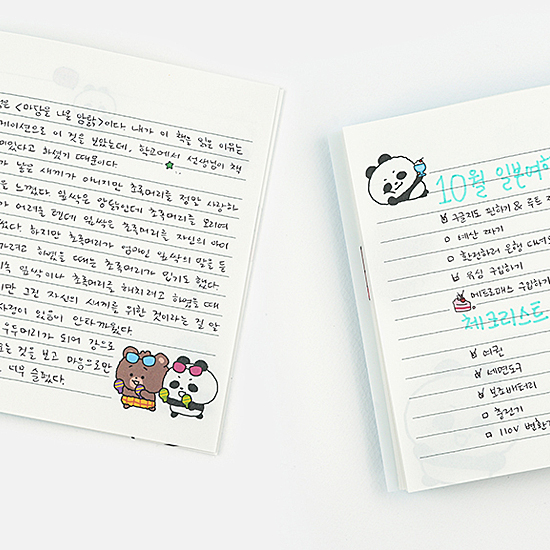 은 <마당을 나온 암탉>이다. 내가 이 책을 읽은 이유는
메이션으로 이 것을 보았는데, 학교에서 선생님이 책
미있다고 하셨기 때문이다.
가 낳은 새끼가 아니지만 초록머리를 정말 사랑하
을 느꼈다. 잎싹은 암탉인데 초록머리를 오리여
가 어려울 텐데 잎싹은 초록머리를 자신의 아이
었다. 하지만 초록머리가 엄마인 잎싹의 말을 듣
가려고 하였을 때는 초록머리가 밉기도 했다.
잎싹이나 초록머리를 해치려고 하였을 때
지만 그건 자신의 새끼를 위한 것이라는 걸 알
사정이 있음이 안타까웠다.
우두머리가 되어 강으로
는 것을 보고 마음으로만
너무 슬펐다.
10월 일본여행
구글지도 핀하기 & 루트
예산 짜기
환전하러 은행 다녀오
유심 구입하기
메트로패스 구입하기
체크리스트
여권
세면도구
보조배터리
충전기
110v 변환